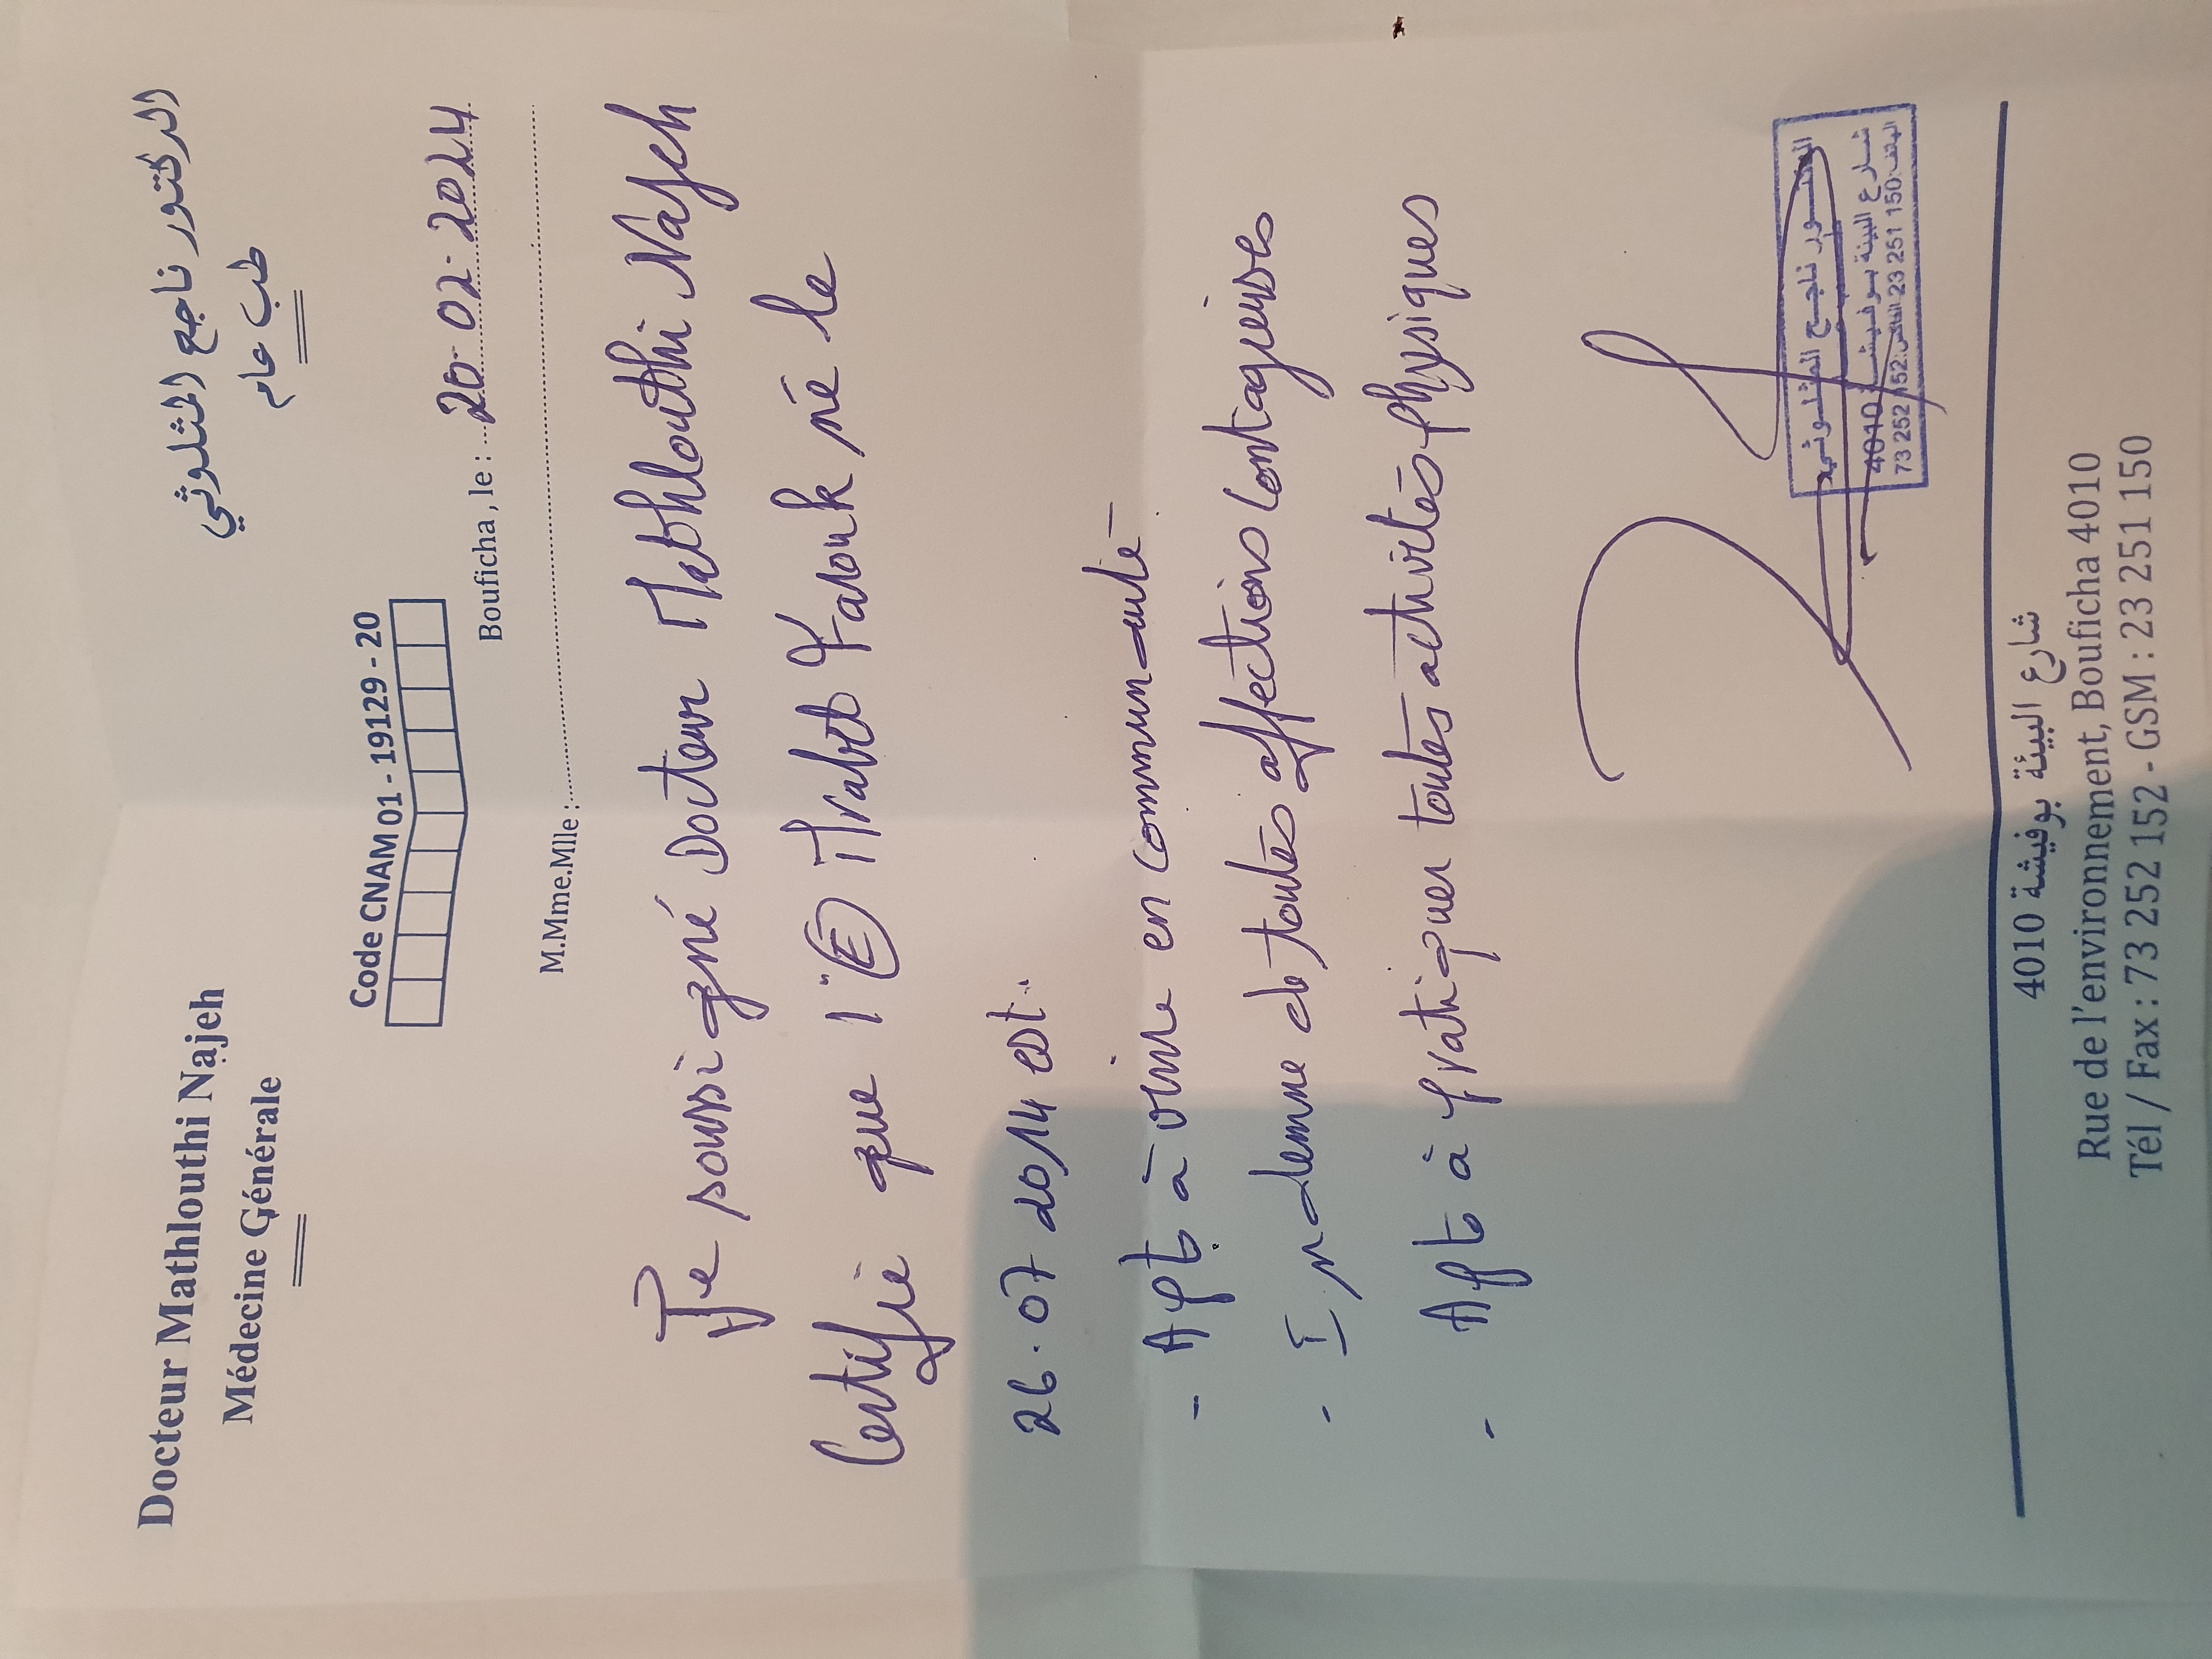 Docteur Mathlouthi Najeh
Médecine Générale
الدكتور ناجح المثلوثي
طب عام
Code CNAM 01 - 19129 - 20
Bouficha , le : 20-02-2024
M.Mme.Mlle :
Je soussigné Docteur Mathlouthi Najeh
Certifie que l'(E) Mrabet Farouk né le
26.07 2014 est:
- Apt à vivre en communauté
- Indemne de toutes affections contagieuses
- Apt à pratiquer toutes activités physiques
ناجح المثلوثي
شارع البيئة بوفيشة 4010
73 252 152 الفاكس 23 251 150 الهاتف
شارع البيئة بوفيشة 4010
Rue de l'environnement, Bouficha 4010
Tél / Fax : 73 252 152 - GSM : 23 251 150